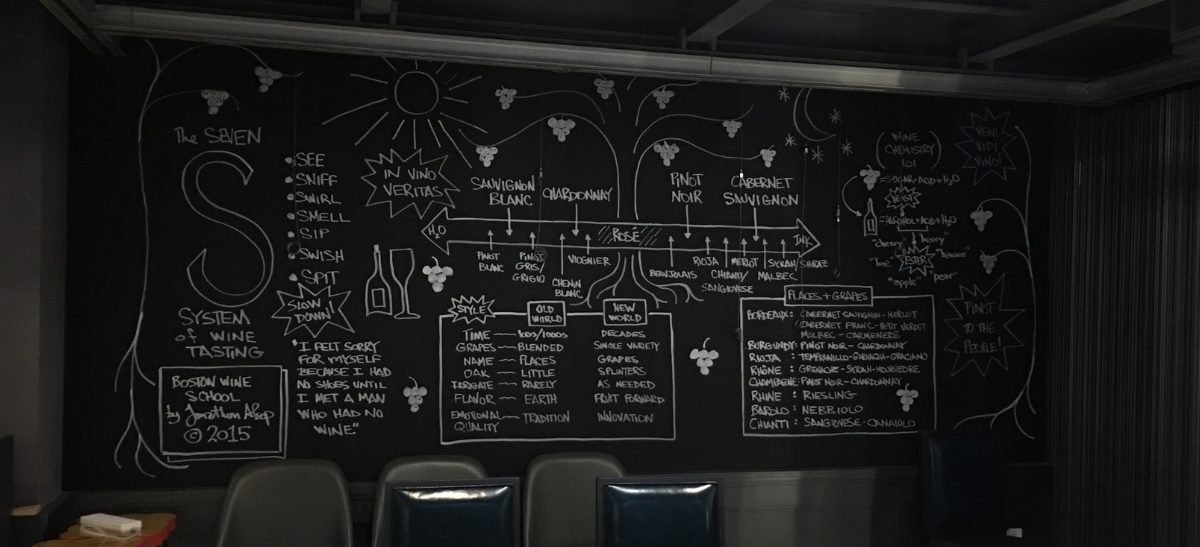 The SEVEN
S
SYSTEM
of WINE
TASTING
SEE
SNIFF
SWIRL
SMELL
SIP
SWISH
SPIT
SLOW
DOWN!
BOSTON WINE
SCHOOL
by Jonathon Alsop
© 2015
"I FELT SORRY
FOR MYSELF
BECAUSE I HAD
NO SHOES UNTIL
I MET A MAN
WHO HAD NO
WINE"
IN VINO
VERITAS
H₂O
SAUVIGNON
BLANC
CHARDONNAY
PINOT
NOIR
CABERNET
SAUVIGNON
ROSÉ
INK
PINOT
BLANC
PINOT
GRIS/
GRIGIO
CHENIN
BLANC
VIOGNIER
BEAUJOLAIS
RIOJA
CHIANTI/
SANGIOVESE
MERLOT
MALBEC
SYRAH/SHIRAZ
STYLE
OLD
WORLD
NEW
WORLD
TIME 100/1000s DECADES
GRAPES BLENDED SINGLE VARIETY
NAME PLACES GRAPES
OAK LITTLE SPLINTERS
IRRIGATE RARELY AS NEEDED
FLAVOR EARTH FRUIT FORWARD
EMOTIONAL TRADITION INNOVATION
QUALITY
PLACES + GRAPES
BORDEAUX: CABERNET SAUVIGNON - MERLOT
CABERNET FRANC - PETIT VERDOT
MALBEC - CARMENERE
BURGUNDY: PINOT NOIR - CHARDONNAY
RIOJA: TEMPRANILLO - GARNACHA - GRACIANO
RHÔNE: GRENACHE - SYRAH - MOURVEDRE
CHAMPAGNE: PINOT NOIR - CHARDONNAY
RHINE: RIESLING
BAROLO: NEBBIOLO
CHIANTI: SANGIOVESE - CANAIOLO
WINE
CHEMISTRY
101
=SUGAR+ACID+H₂O
YEAST
=ALCOHOL+ACID+H₂O
"cherry"
"berry"
"lime"
ESTER
"apple"
"pear"
VENI
VIDI
VINO!
PINOT
TO THE
PEOPLE!